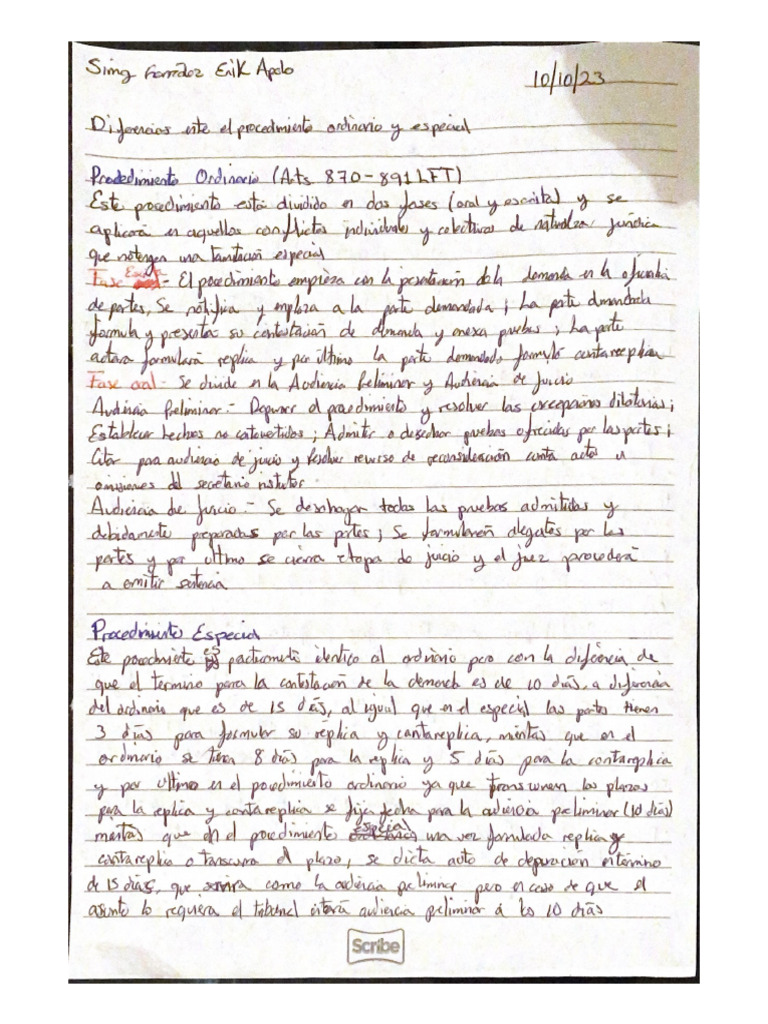 Erik Apolo
10/10/23
Diferencias ente el procedimiento ordinario y especial
Procedimiento Ordinario (Arts 870-891 LFT)
Este procedimiento está dividido en dos fases (oral y escrita) y se
aplicará en aquellos conflictos individuales y colectivos de naturaleza jurídica
que no tengan una tramitación especial
Fase Escrita - El procedimiento empieza con la presentación de la demanda en la oficialia
de partes, Se notifica y emplaza a la parte demandada ; La parte demandada
formula y presenta su contestación de demanda y anexa pruebes ; La parte
actora formulará replica y por ultimo la parte demandada formuló contrareplica
Fase oral - Se divide en la Audiencia Preliminar y Audiencia de juicio
Audiencia Preliminar - Depurar el procedimiento y resolver las excepciones dilatorias ;
Establecer hechos no controvertidos ; Admitir o desechar pruebas ofrecidas por las partes ;
Citar para audiencia de juicio y Resolver recurso de reconsideración contra actos u
omisiones del secretario instructor
Audiencia de Juicio - Se desahogan todas las pruebas admitidas y
debidamente preparadas por las partes ; Se formularán alegatos por las
partes y por ultimo se cierra etapa de juicio y el juez procederá
a emitir sentencia
Procedimiento Especial
Este procedimiento es practicamente identico al ordinario pero con la diferencia de
que el termino para la contestación de la demanda es de 10 días, a diferencia
del ordinario que es de 15 días, al igual que en el especial las partes tienen
3 días para formular su réplica y contrareplica, mientras que en el
ordinario se tiene 8 días para la replica y 5 días para la contrareplica
y por ultimo en el procedimiento ordinario ya que transcurren los plazos
para la replica y contrareplica se fija fecha para la audiencia preliminar (10 días)
mientras que en el procedimiento especial una vez formulada replica y
contrareplica o transcurra el plazo, se dicta auto de depuracion en termino
de 15 días, que servira como la audiencia preliminar pero en caso de que el
asunto lo requiera el tribunal citará audiencia preliminar á los 10 días
Scribe